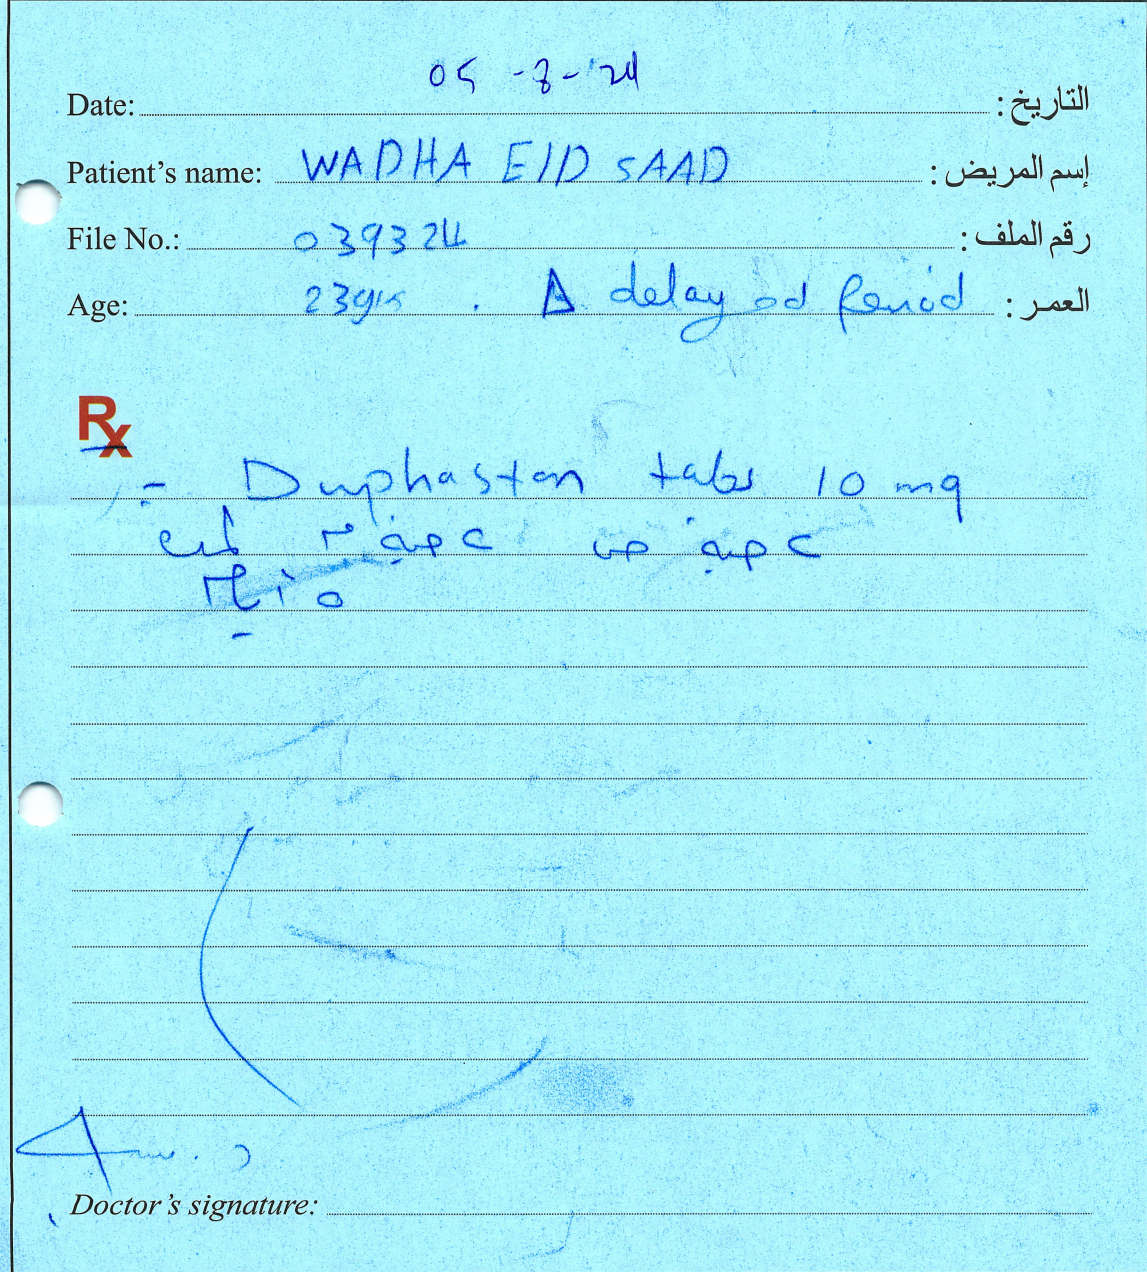 05 -8- 24
Date: التاريخ :
Patient's name: WADHA EID SAAD إسم المريض :
File No.: 039324 رقم الملف :
Age: 23yrs . Δ delay od Period العمر :
Rx
- Duphaston tabs 10 mg
حبة ص حبة م لمدة
٥ أيام
Doctor's signature: